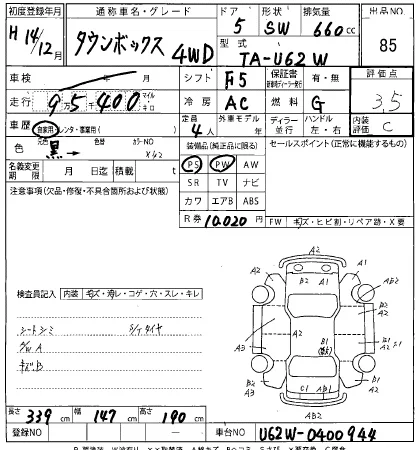 初度登録年月 通称車名・グレード ドア 形状 排気量 出品NO.
H 14/12月 タウンボックス 4WD 5 SW 660cc 85
型式 TA-U62W
車検 年 月 シフト F5 保証書 有・無 評価点
走行 9万5千400 マイル キロ 冷房 AC 燃料 G 3.5
車歴 自家用・レンタ・事業用( ) 定員 4人 外車モデル 年 ディーラー 並行 ハンドル 左・右 内装 C
色 元色 黒→ 色替 カラーNO X42 装備品(純正品に限る) セールスポイント(正常に機能するもの)
名義変更期限 月 日迄 積載 t PS PW AW
注意事項(欠品・修復・不具合箇所および状態) SR TV ナビ
カワ エアB ABS
R券 10,020円 FW キズ・ヒビ割・リペア跡・X要
検査員記入 内装 キズ・汚レ・コゲ・穴・スレ・キレ
シートシミ S/Tタイヤ
A
キズB
A2
A2 A1
B2 A1
A2 B2 A2
A3 B1 B1 A2 S1
A3 A2
B2 C1 AB1 B1 A2
AB2
長さ 339cm 幅 147cm 高さ 190cm
登録NO 車台NO U62W-0400944